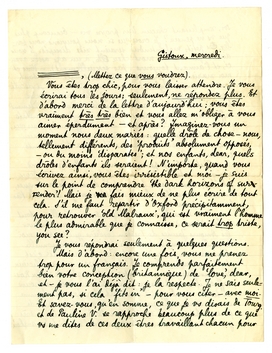 Gisoux, mercredi.
, (Mettez ce que vous voudrez).
Vous êtes trop chic, pour vous laisser attendre. Je vous
écrirai tous les jours; seulement, ne répondez plus. Et
d'abord merci de la lettre d'aujourd'hui: vous êtes
vraiment très très bien et vous allez m'obliger à vous
aimer éperdument — et après? Imaginez-vous un
moment nous deux mariés: quelle drôle de chose — nous,
tellement différents, des 'produits' absolument opposés,
— ou du moins disparates; et nos enfants, dear, quels
drôles d'enfants ils seraient! N'importe: quand vous
écrivez ainsi, vous êtes irrésistible et moi — je suis
sur le point de comprendre 'the dark horizons of surr-
render'! Mais je fais mieux de ne plus écrire de tout
cela. S'il me faut repartir d'Oxford précipitamment,
pour retrouver 'old Malraux', qui est vraiment l'homme
le plus admirable que je connaisse, ce serait trop triste,
you see?
Je vous répondrai seulement à quelques questions.
Mais d'abord: encore une fois, vous me prenez
trop pour un français. Je comprends parfaitement
bien votre conception (britannique) de 'love, dear,
et — je vous l'ai déjà dit — je la respecte. Je ne sais seule-
ment pas, si cela 'fits in' — pour vous citer — avec moi.
Et savez-vous, qu'en somme, ce que je vous disais de
et de Pauline V. se rapproche beaucoup plus de ce que
vous me dites de ces deux êtres travaillant chacun pour